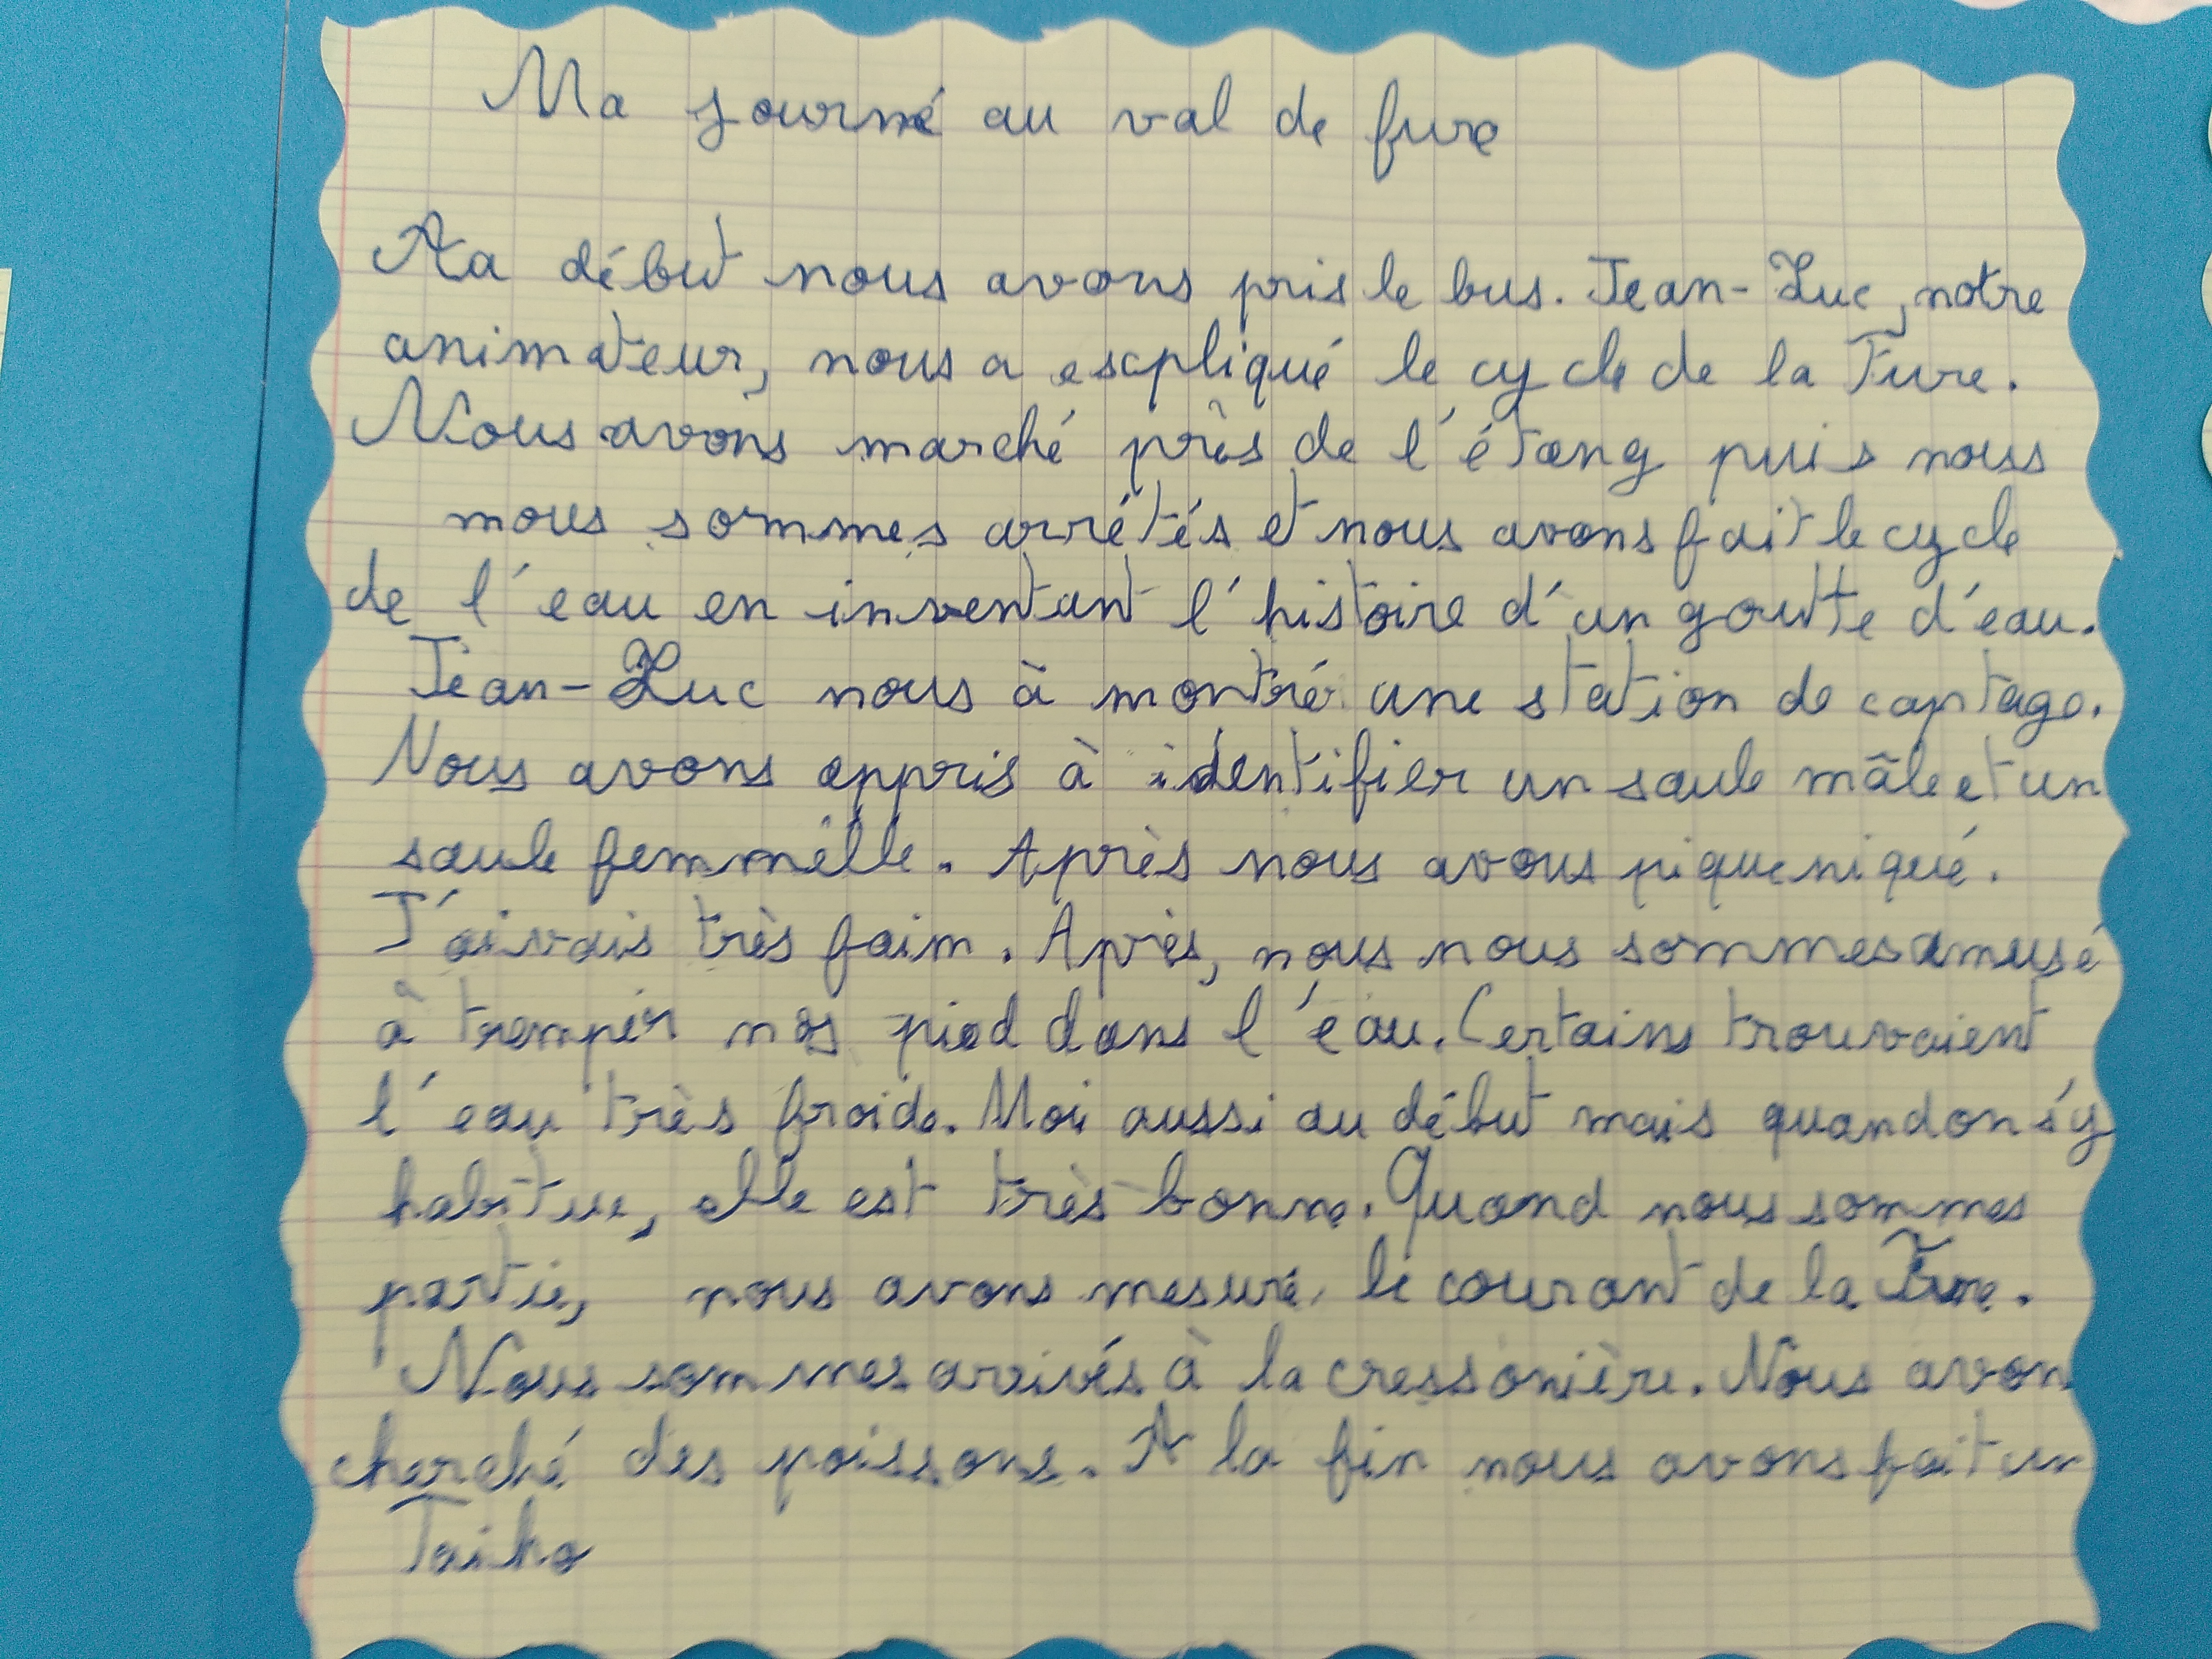 Ma journé au val de fure
Aa début nous avons pris le bus. Jean-Luc, notre
animateur, nous a escpliqué le cycle de la Fure.
Nous avons marché près de l'étang puis nous
nous sommes arrétés et nous avons fait le cycle
de l'eau en inventant l'histoire d'un goutte d'eau.
Jean-Luc nous à montré une station de captage.
Nous avons appris à identifier un saule mâle et un
saule femmèlle. Après nous avous piqueniqué.
J'aivais très faim. Après, nous nous sommes amusé
à tremper nos pied dans l'eau. Certains trouvaient
l'eau très froide. Moi aussi au début mais quand on s'y
habitue, elle est très bonne. Quand nous sommes
partie, nous avons mesuré le courant de la Fure.
Nous sommes arrivés à la cressonière. Nous avon
cherché des poissons. A la fin nous avons fait un
Taiko